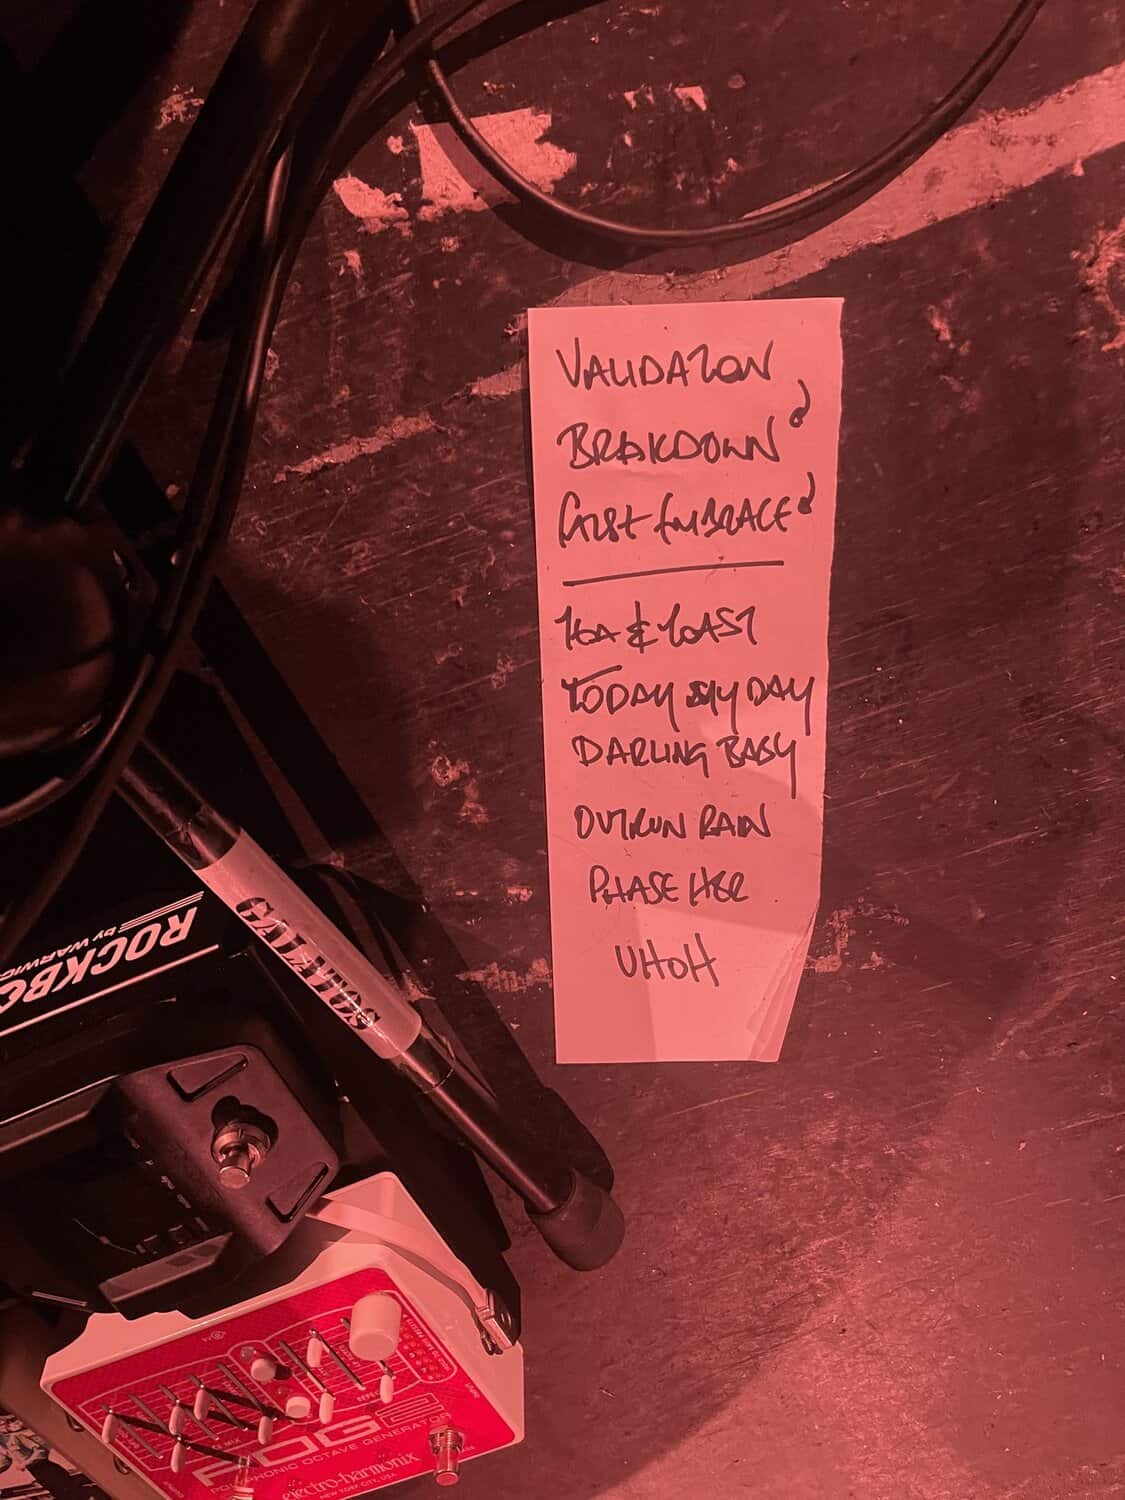 VALIDAZON
BREAKDOWN
FIRST EMBRACE
TEA & TOAST
TODAY MY DAY
DARLING BABY
OUTRUN RAIN
PHASE HER
UHOH
ROCKBO
by WARWIC
POG2
POLYPHONIC OCTAVE GENERATOR
electro-harmonix
NEW YORK CITY, USA